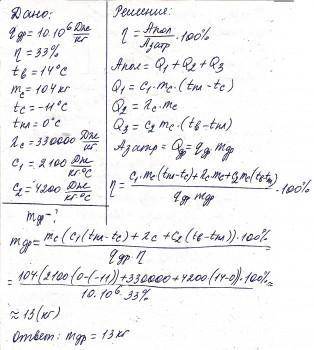 Дано:
qдр = 10·10⁶ Дж/кг
η = 33%
tв = 14°C
mс = 104 кг
tс = -11°C
tпл = 0°C
λс = 330000 Дж/кг
c₁ = 2100 Дж/кг·°C
c₂ = 4200 Дж/кг·°C
mдр - ?
Решение:
η = Aпол/Aзатр · 100%
Aпол = Q₁ + Q₂ + Q₃
Q₁ = c₁ mс · (tпл - tс)
Q₂ = λс · mс
Q₃ = c₂ mс · (tв - tпл)
Aзатр = Qдр = qдр mдр
η = c₁ mс (tпл - tс) + λс mс + c₂ mс (tв - tпл) / qдр mдр · 100%
mдр = mс (c₁ (tпл - tс) + λс + c₂ (tв - tпл)) · 100% / qдр η =
= 104 (2100 (0 - (-11)) + 330000 + 4200 (14 - 0)) · 100% / 10·10⁶ · 33% ≈
≈ 13 (кг)
Ответ: mдр = 13 кг